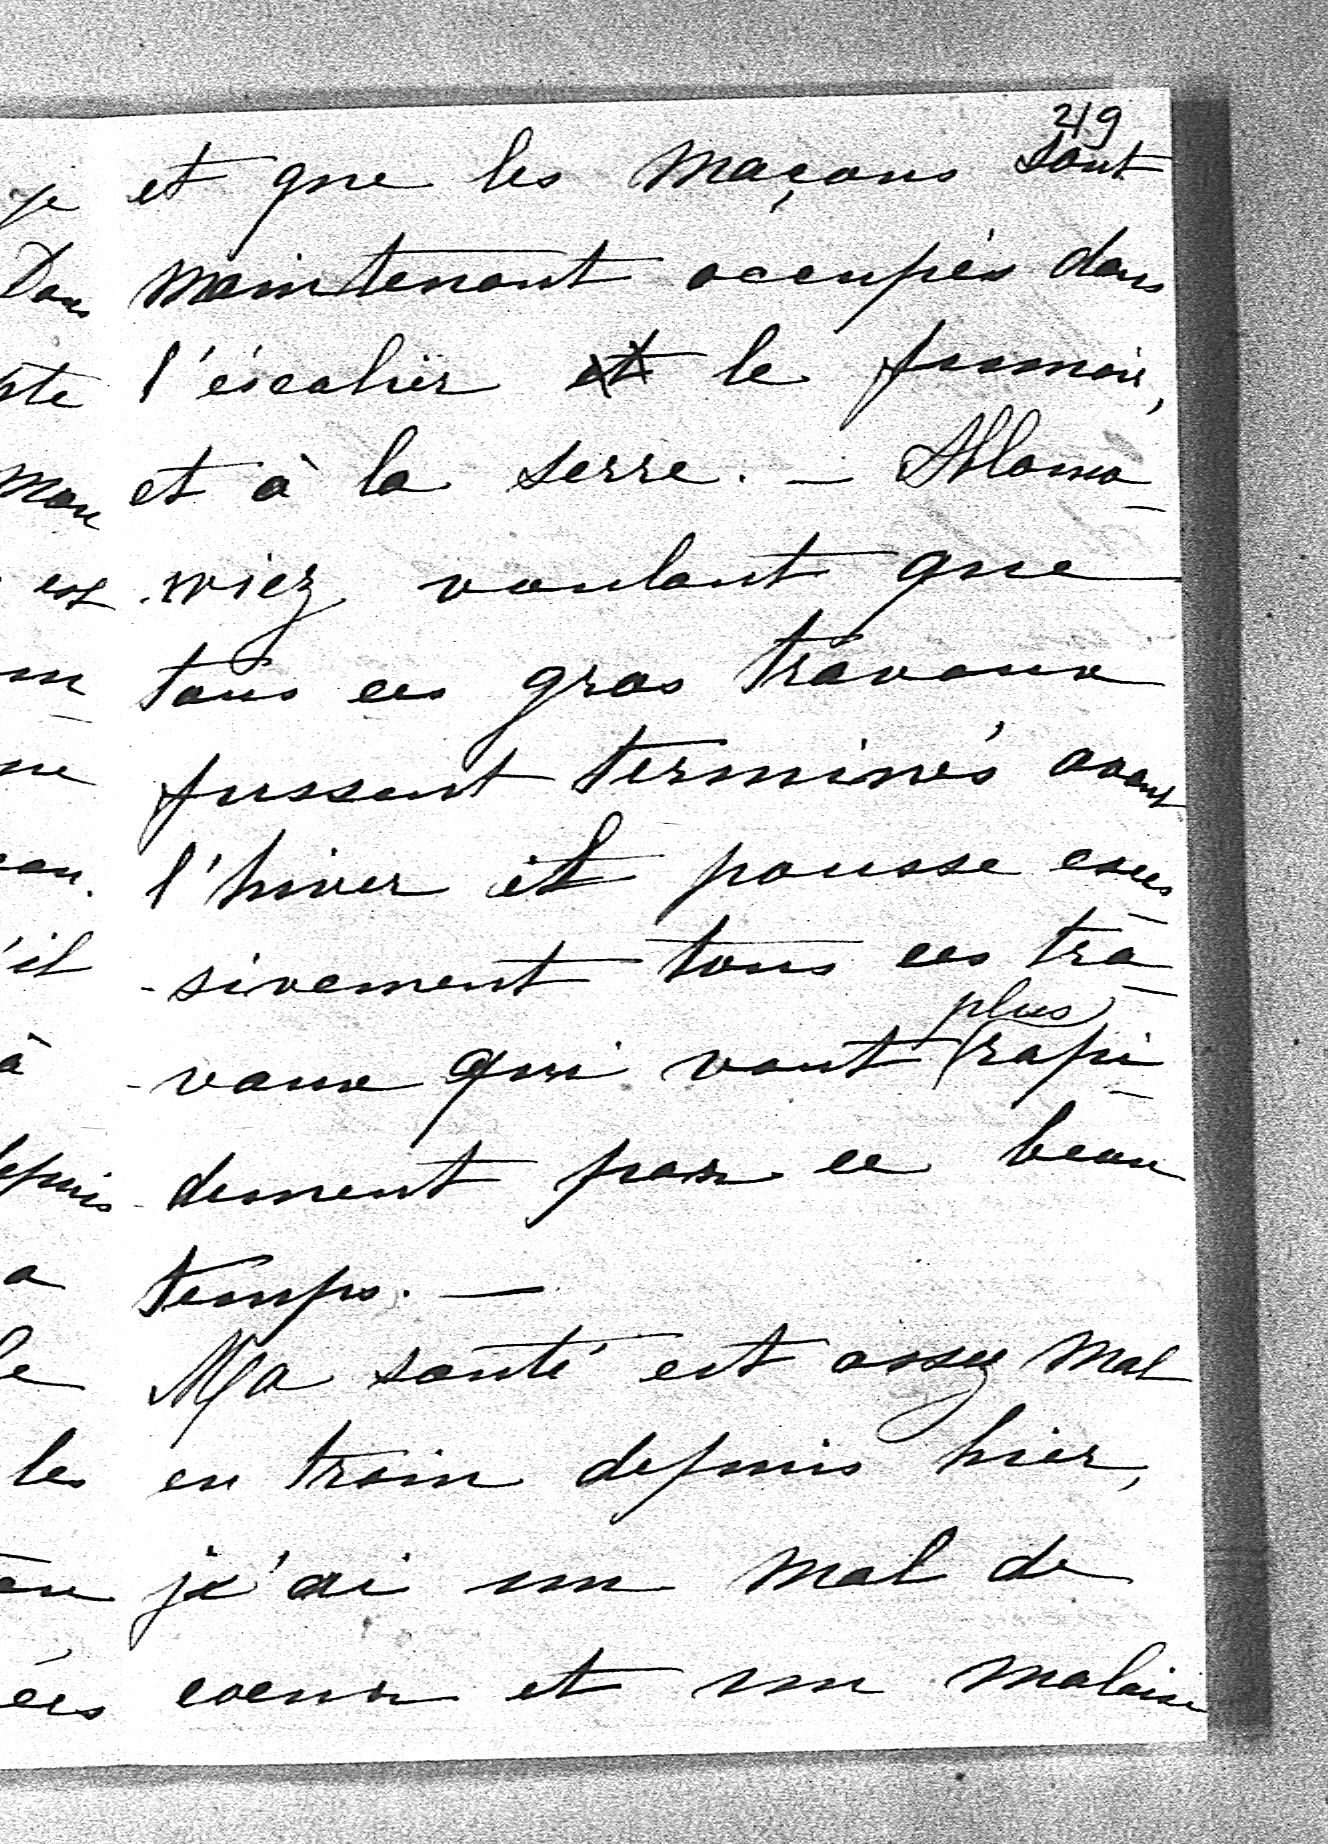 219
et que les maçons sont
maintenant occupés dans
l'éscalier et le fumoir,
et à la serre. — Abamo-
wiez voulant que
tous ces gros travaux
fussent terminés avant
l'hiver il pousse exces
-sivement tous ces tra-
-vaux qui vont plus rapi-
-dement par ce beau
temps. —
Ma santé est assez mal
en train depuis hier,
j'ai un mal de
coeur et un malaise